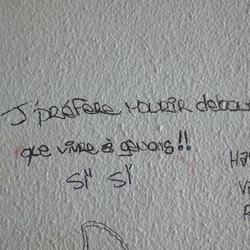 J'PRÉFÈRE MOURIR debou
que vivre à genoux!!
SY SY
H7
V